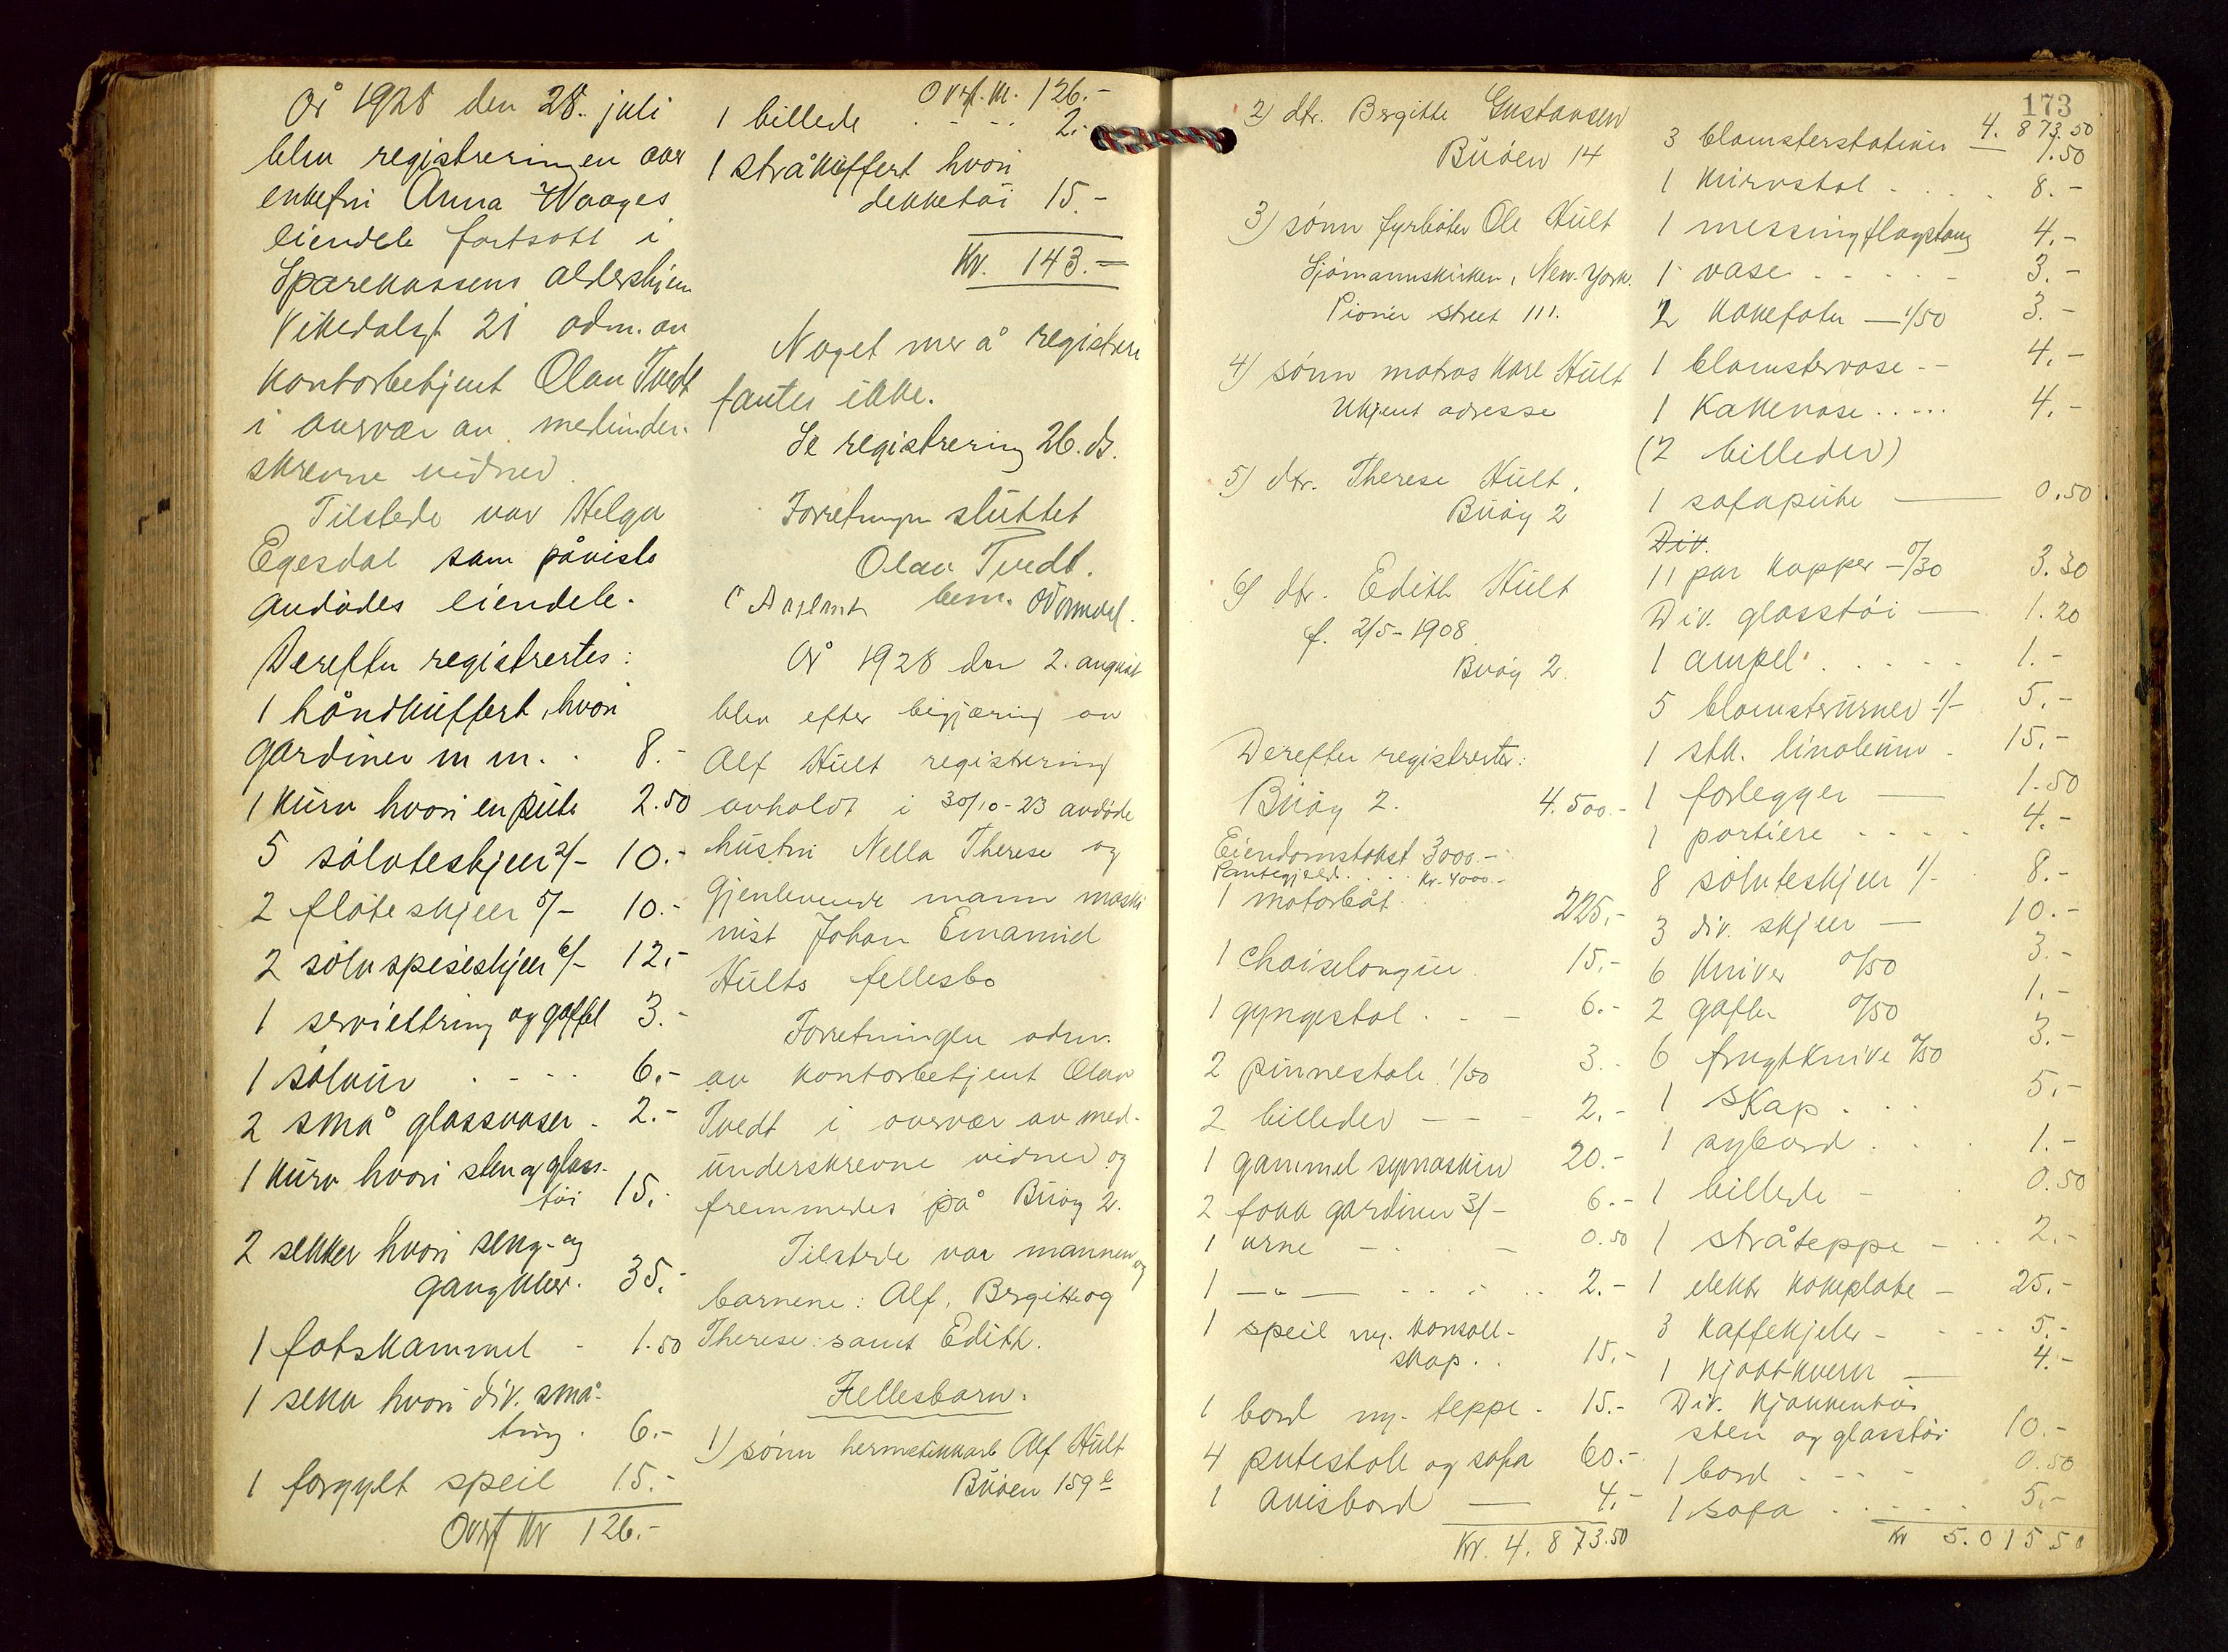 År 1928 den 28. juli
blev registreringen over
enkefru Anna Waages
eiendele fortsatt i
Sparekassens aldershjem
Vikedalsgt 21 adm. av
kontorbetjent Olav Tvedt
i overvær av medunder-
skrevne vidner.
Tilstede var Helga
Egesdal som påviste
avdødes eiendele.
Derefter registrertes:
1 håndkuffert, hvori
gardiner m m. . 8.-
1 kurv hvori en pute 2.50
5 sølvteskjeer 2/- 10.-
2 fløteskjeer 5/- 10.-
2 sølvspiseskjeer 6/- 12.-
1 serviettring og gaffel 3.-
1 sølvur . - - - 6.-
2 små glassvaser . 2.-
1 kurv hvori sten og glass-
tøi 15.-
2 sekker hvori seng- og
gangklær. 35.-
1 fotskammel - 1.50
1 sekk hvori div. små-
ting . 6.-
1 forgylt speil 15.-
Overf kr 126.-
Overf. kr. 126.-
1 billede . - - - 2.-
1 stråkuffert hvori
dekketøi 15.-
Kr. 143.-
Noget mer å registrere
fantes ikke.
Se registrering 26. ds.
Forretningen sluttet
Olav Tvedt.
bem.
År 1928 den 2. august
blev efter begjæring av
Alf Hult registrering
avholdt i 30/10-23 avdøde
hustru Nella Therese og
gjenlevende mann maski
nist Johan Emanuel
Hults fellesbo
Forretningen adm.
av kontorbetjent Olav
Tvedt i overvær av med-
underskrevne vidner og
fremmedes på Buøy 2.
Tilstede var mannen og
barnene: Alf, Brgitte og
Therese samt Edith.
Fellesbarn:
1) sønn hermetikkarb Alf Hult
Buøen 159 b
2) dtr. Brgitte Gustavsen
Buøen 14
3) sønn fyrbøter Ole Hult
Sjømannskirken, New-York.
Pionér street 111.
4) sønn matros Karl Hult
Ukjent adresse
5) dtr. Therese Hult.
Buøy 2
6) dtr. Edith Hult
f. 2/5-1908
Buøy 2.
Derefter registrertes:
Buøy 2. 4.500.-
Eiendomstakst 3000.-
Pantegjeld. . . . Kr. 4000.-
1 motorbåt 225.-
1 chaiselongue 15.-
1 gyngestol . - - 6.-
2 pinnestole 1/50 3.-
2 billeder - - - 2.-
1 gammel symaskin 20.-
2 fakk gardiner 3/- 6.-
1 urne - . - 0.50
1 —"— . . - . . 2.-
1 speil m. konsoll-
skap . . 15.-
1 bord m. teppe - 15.-
4 putestole og sofa 60.-
1 avisbord — 4.-
Kr. 4.873.50
173
4.873.50
3 blomsterstativer — 1.50
1 kurvstol . . . . 8.-
1 messingflagstang 4.-
1 vase . - - - - 3.-
2 kakefater — 1/50 3.-
1 blomstervase - - 4.-
1 kakevase . . . . . 4.-
(2 billeder)
1 sofapute — 0.50
Div.
11 par kopper - 0/30 3.30
Div. glasstøi — 1.20
1 ampel . . . . . . 1.-
5 blomsterurner 1/- 5.-
1 stk. linoleum . 15.-
1 forlegger — 1.50
1 portiere - - - - 4.-
8 sølvteskjeer 1/- . 8.-
3 div. skjeer — 10.-
6 kniver 0/50 3.-
2 gafler 0/50 1.-
6 frugtknive 0/50 3.-
1 skap . . . 5.-
1 sybord . . . 1.-
1 billede - . 0.50
1 stråteppe - . . 2.-
1 elektr kokeplate - 25.-
3 kaffekjeler - - - - 5.-
1 kjøttkvern — 4.-
Div. kjøkkentøi
sten og glasstøi 10.-
1 bord . - - - 0.50
1 sofa . . . . . . 5.-
Kr 5.015.50